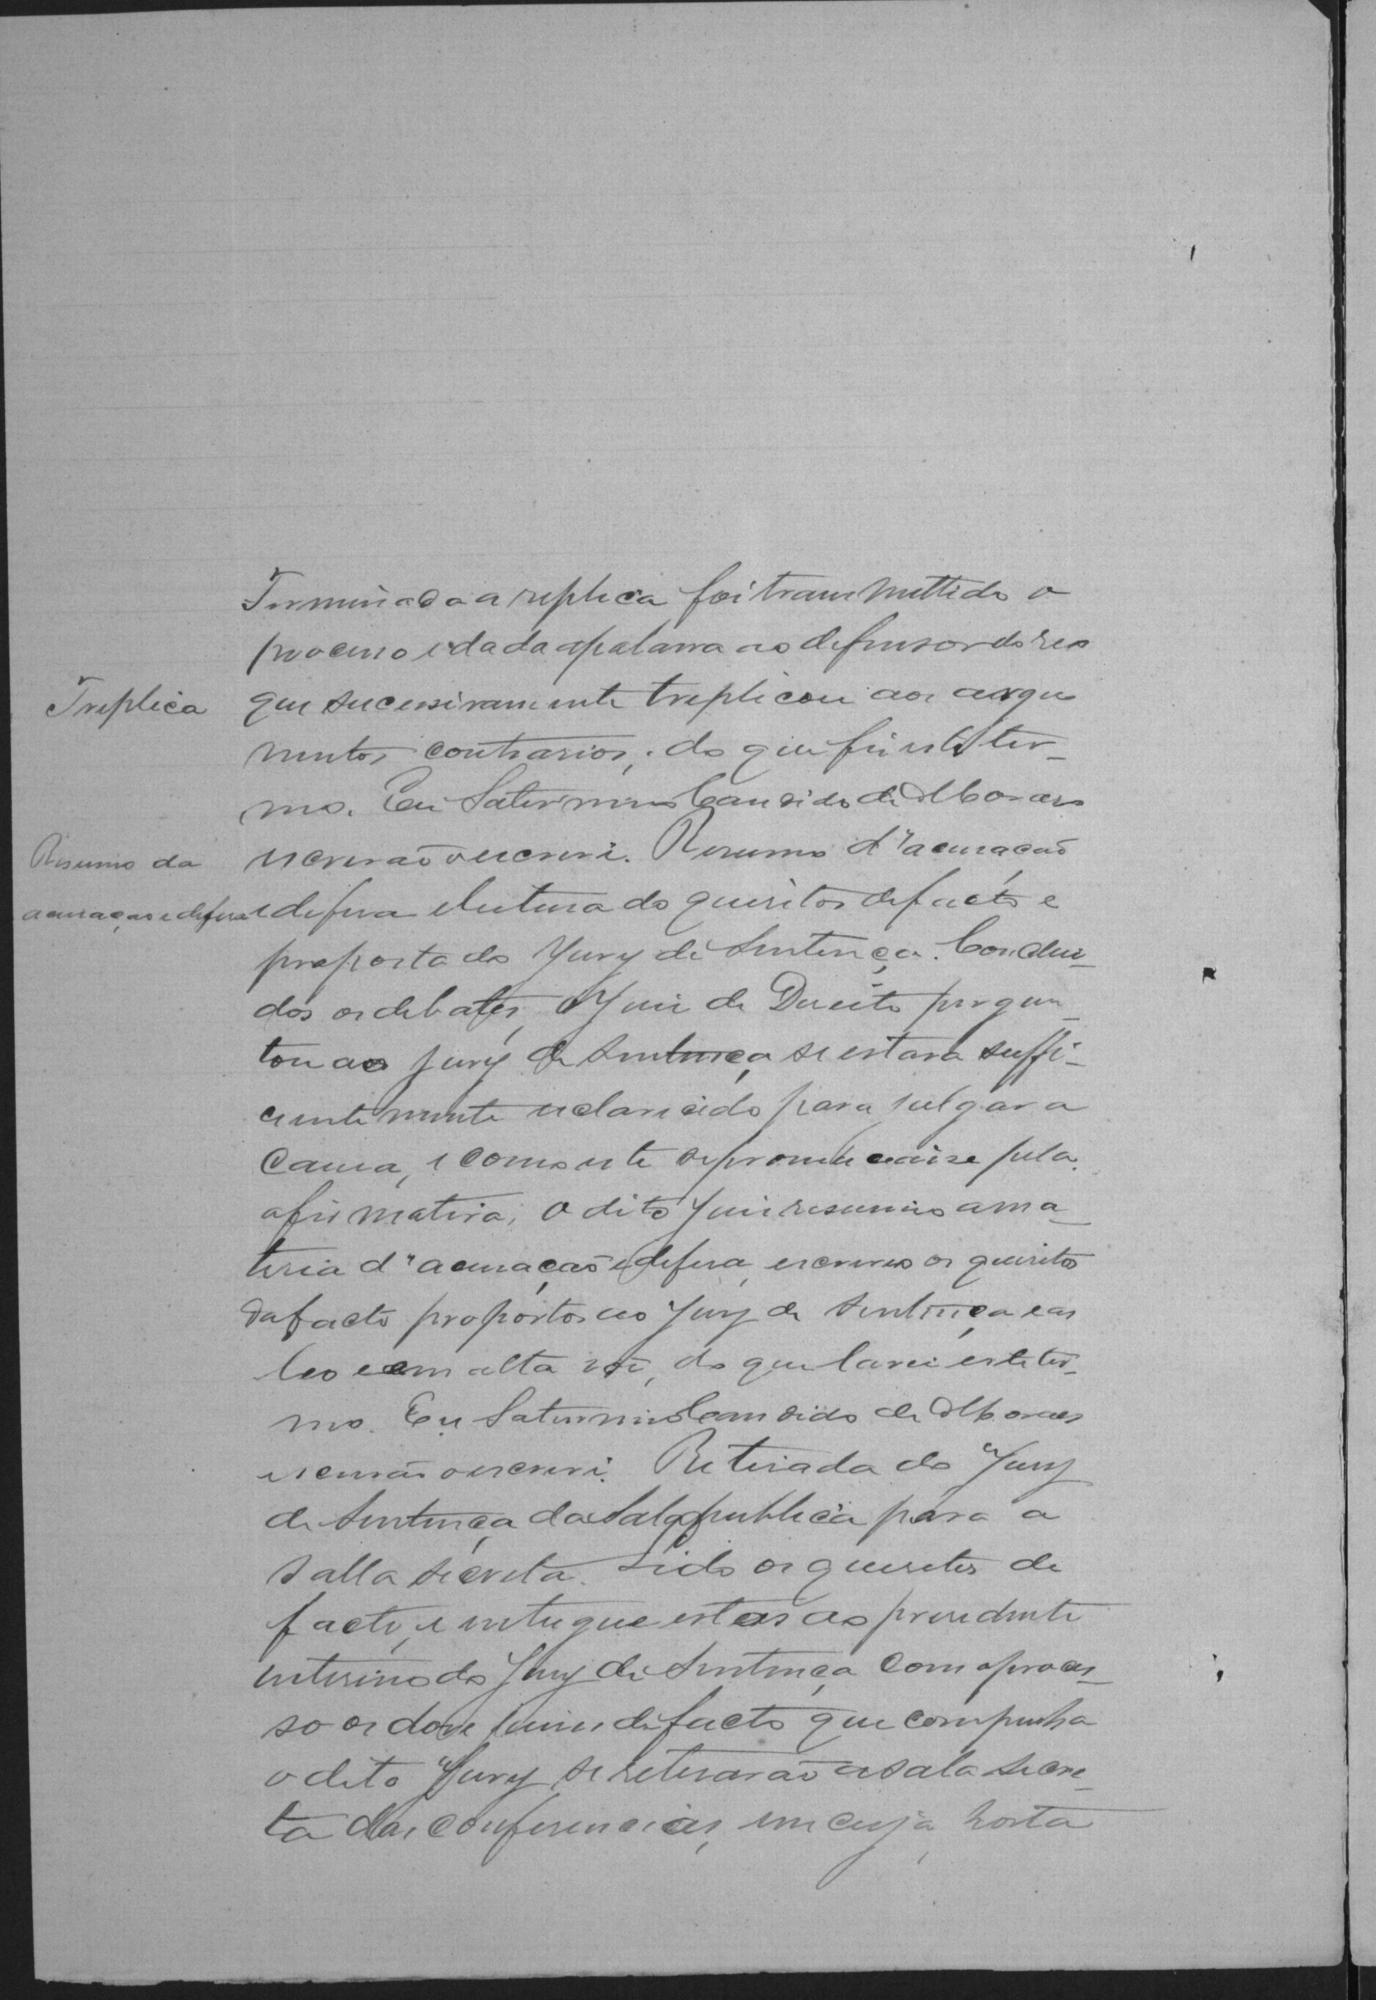 Terminada a replica foi transmettido o
processo e dada a palavra ao defensor do reo
Treplica
que sucessivamente treplicou aos argu
mentos contrarios; do que fiz este ter-
mo. Eu Saturnino Candido de Moraes
Resumo da
accusação e defesa
escrivão o escrevi. Resumo d'acusação
e defesa e leitura do quesitos de facto e
proposta do Jury de Sentença. Conclui-
dos os debates, o Juiz de Direito pergun-
tou ao Jury de Sentença se estava suffi-
cientemente esclarecido para julgar a
causa, e como este se pronunciaise pela
afirmativa, o dito Juiz resumio a ma-
teria d'acusação e defesa, escreveo os quesitos
de facto propostos ao Jury de Sentença e as
leo em alta voz, do que lavrei este ter-
mo. Eu Saturnino Candido de Moraes
escrivão o escrevi. Retirada do Jury
de Sentença da Sala publica para a
Salla secreta. Lido os quesitos de
facto, e entregue estas ao presidente
interino do Jury de Sentença com o proces-
so os doze juizes de facto que compunha
o dito Jury, se retirarão a sala secre-
ta das conferencias, em cuja porta